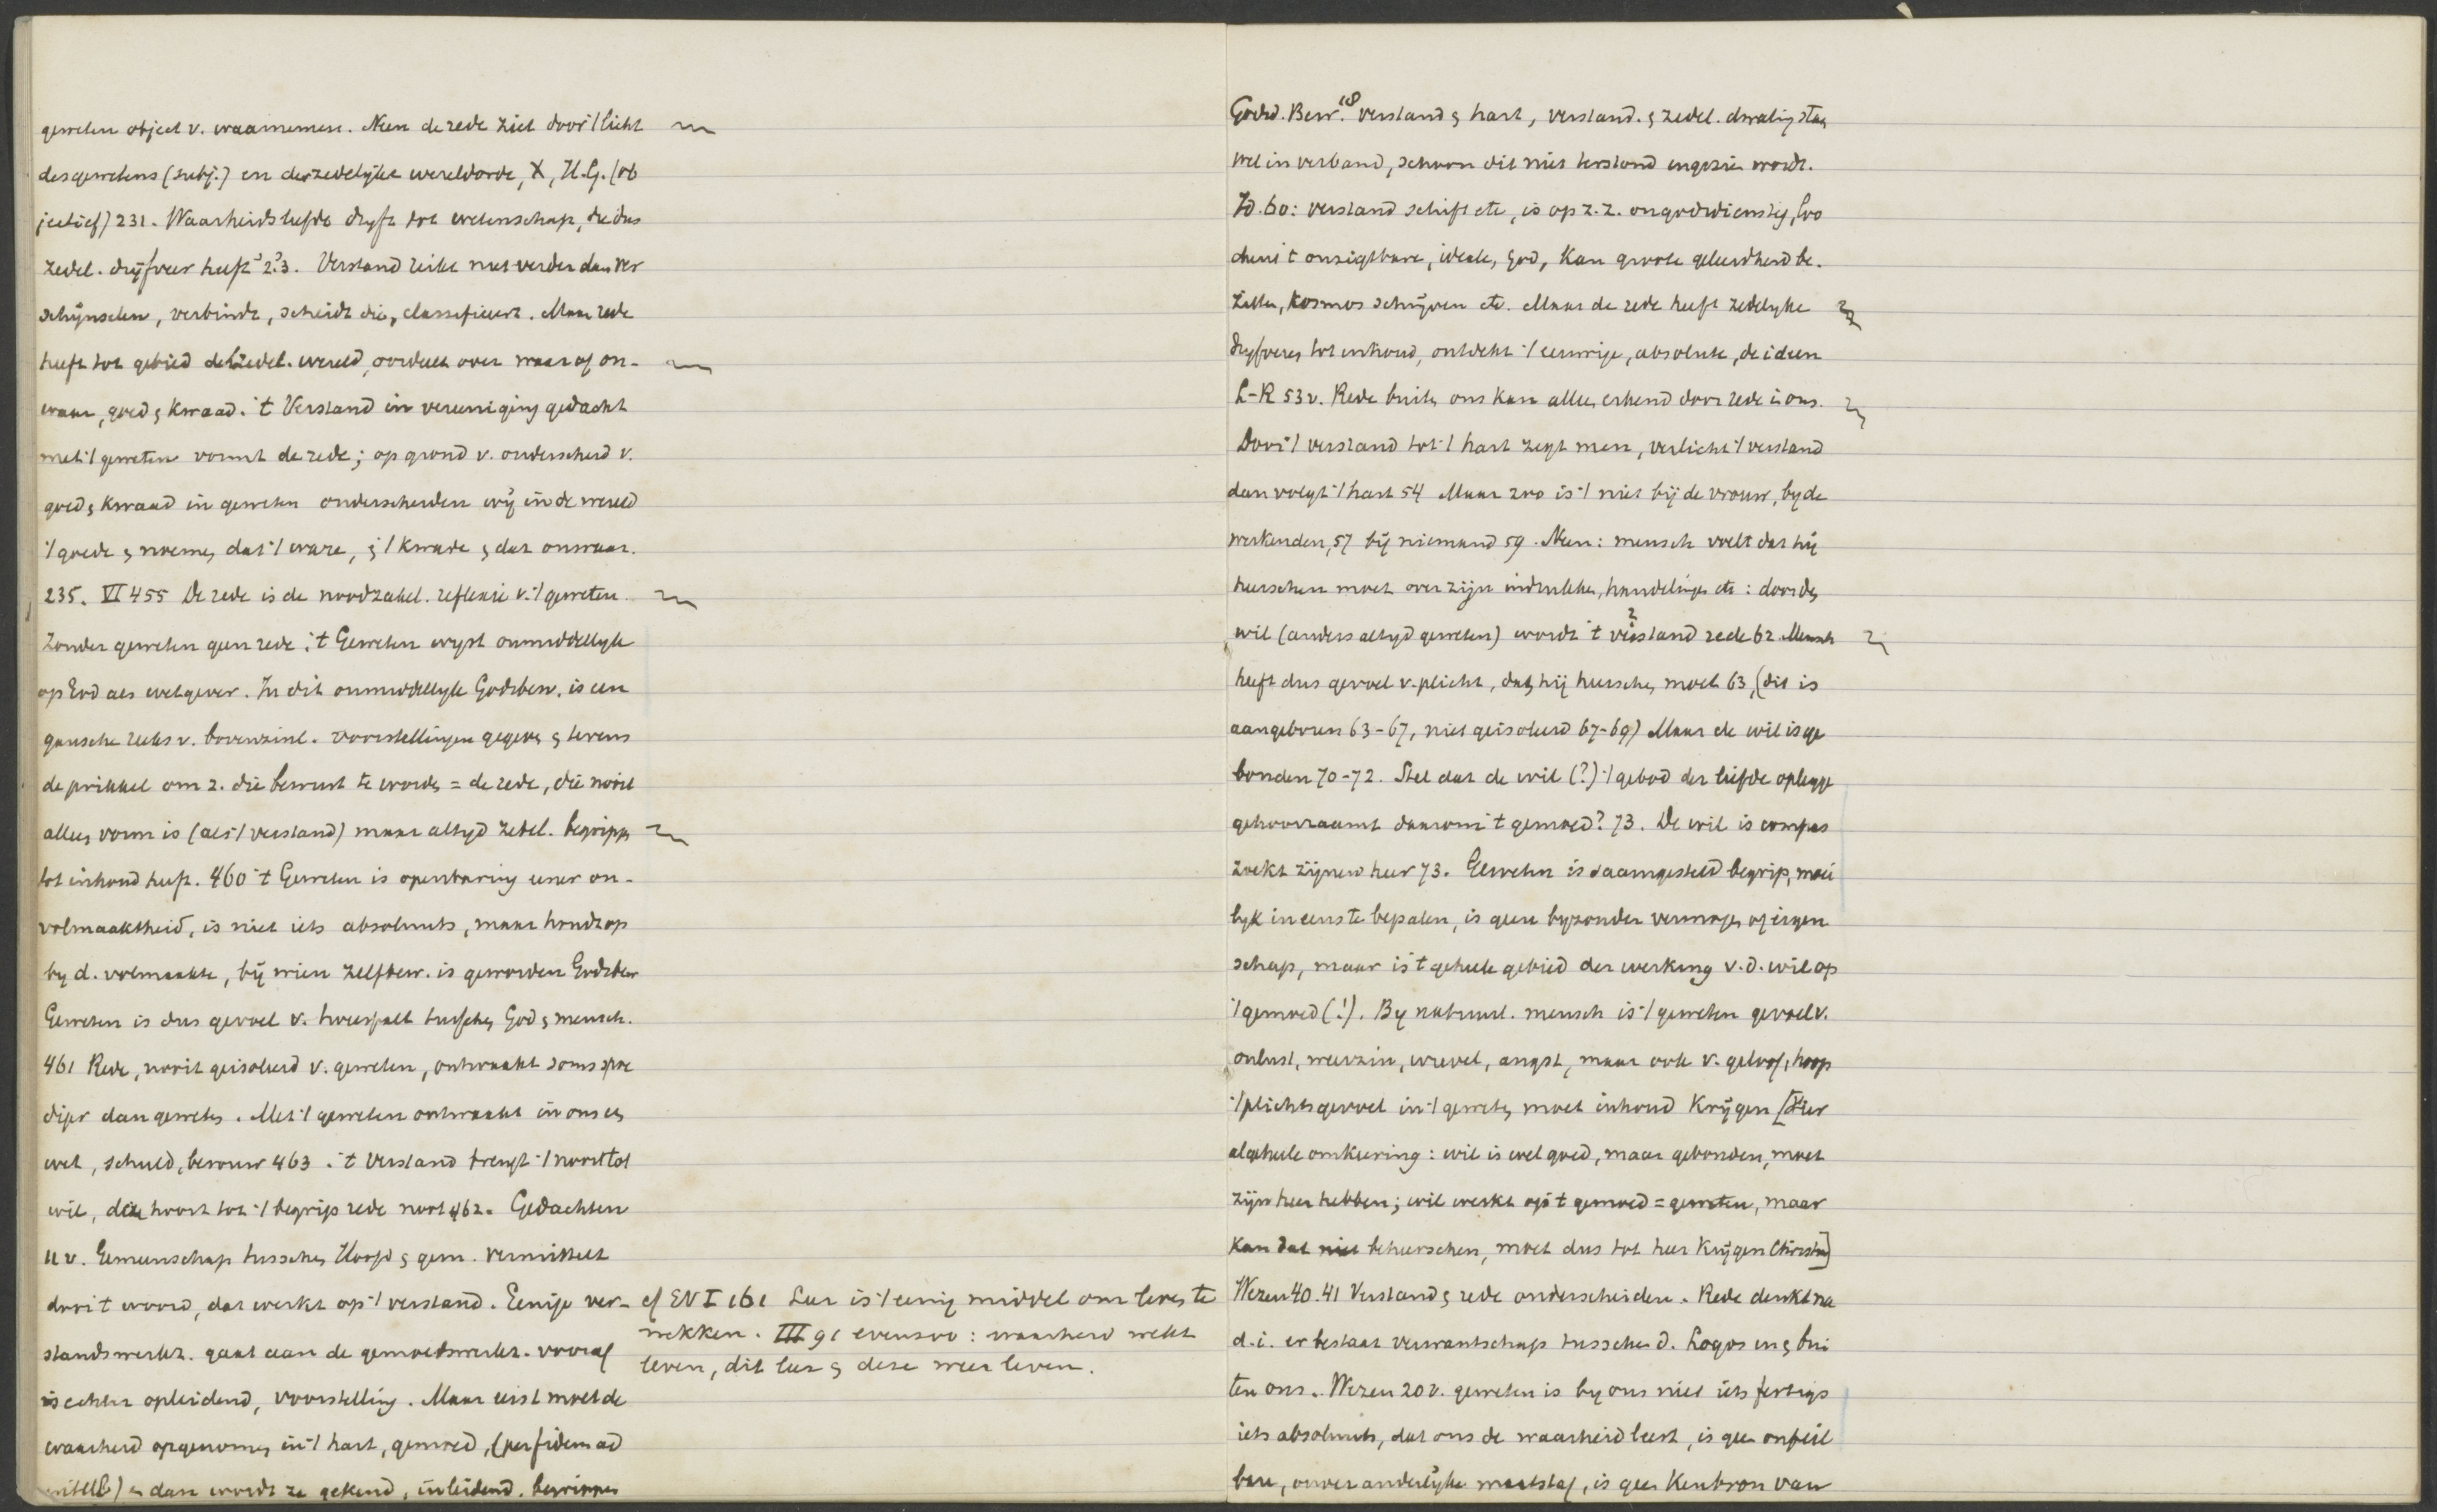 geweten object v. waarnemen. Neen de rede ziet door 't licht
des gewetens (subj.) en der zedelijke wereldorde, X, H.G. (ob
jectief) 231. Waarheidsliefde dryft tot wetenschap, die dus
zedel. drijfveer heeft 233. Verstand reikt niet verder dan ver
schijnselen, verbindt, scheidt die, classificeert. Maar rede
heeft tot gebied de zedel. wereld, oordeelt over waar of on-
waar, goed & kwaad. 't Verstand in vereeniging gedacht
met 't geweten vormt de rede; op grond v. onderscheid v.
goed & kwaad in geweten onderscheiden wij in de wereld
't goede & noemen dat 't ware, & 't kwade & dat onwaar.
235. VI 455 De rede is de noodzakel. reflexie v. 't geweten.
Zonder geweten geen rede; 't Geweten wyst onmiddellyk
op God als wetgever. In dit onmiddellyk Godsbew. is een
gansche reeks v. bovenzinl. voorstellingen gegeven & tevens
de prikkel om z. die bewust te worden = de rede, die nooit
alleen vorm is (als 't verstand) maar altyd zedel. begrippen
tot inhoud heeft. 460 't Geweten is openbaring eener on-
volmaaktheid, is niet iets absoluuts, maar houdt op
by d. volmaakte, bij wien zelfbew. is geworden Godsbew
Geweten is dus gevoel v. tweespalt tusschen God & mensch.
461 Rede, nooit geisoleerd v. geweten, ontwaakt soms spoe
diger dan geweten. Met 't geweten ontwaakt in ons een
wet, schuld, berouw 463. 't Verstand brengt 't nooit tot
wil, die hoort tot 't begrip rede noot 462. Gedachten
II v. Gemeenschap tusschen Hoofd & gem. vermittelt
door 't woord, dat werkt op 't verstand. Eenige ver-
standswerkz. gaat aan de gemoedswerkz. vooraf
is echter opleidend, voorstelling. Maar eerst moet de
waarheid opgenomen in 't hart, gemoed, (per fidem ad
intell) & dan wordt ze gekend, inleidend, begrippen
cf EV I 161 Leer is 't eenig middel om leven te
wekken. III 91 evenzoo: waarheid wekt
leven, dit leer & deze weer leven.
Godsd. Bew. 18 verstand & hart, verstand. & zedel. dwaling staan
wel in verband, schoon dit niet terstond ingezien wordt.
Id. 60: verstand schift etc, is op z. z. ongodsdienstig, loo
chent 't onzigtbare, ideale, God, kan groote geleerdheid be-
zitten, kosmos schrijven etc. Maar de rede heeft zedelyke
dryfveren tot inhoud, ontdekt 't eeuwige, absolute, de ideen
L-R 53v. Rede buiten ons kan alleen erkend door rede in ons.
Door 't verstand tot 't hart zegt men, verlicht 't verstand
dan volgt 't hart 54 Maar zoo is 't niet bij de vrouw, by de
werkenden, 57 bij niemand 59. Neen: mensch voelt dat hij
heerschen moet over zijn indrukken, handelingen etc: door den
wil (anders altyd geweten) wordt 't verstand rede 62 Mensch
heeft dus gevoel v. plicht, dat hij heerschen moet 63, (dit is
aangeboren 63-67, niet geisoleerd 67-69) Maar de wil is ge
bonden 70-72. Stel dat de wil (?) 't gebod der liefde oplegge
gehoorzaamt daarom 't gemoed? 73. De wil is compas
zoekt zijnen heer 73. Geweten is saamgesteld begrip, moei
lyk in eens te bepalen, is geen byzonder vermogen of eigen
schap, maar is 't geheele gebied der werking v. d. wil op
't gemoed (!). By natuurl. mensch is 't geweten gevoel v.
onlust, weerzin, wrevel, angst, maar ook v. geloof, hoop
't plichtsgevoel in 't geweten moet inhoud krijgen [Hier
algeheele omkeering: wil is wel goed, maar gebonden, moet
zijn heer hebben; wil werkt op 't gemoed = geweten, maar
kan dat niet beheerschen, moet dus tot heer krijgen Christus]
Wezen 40.41 Verstand & rede onderscheiden. Rede denkt na
d.i. er bestaat verwantschap tusschen d. Logos in & bui
ten ons. Wezen 20v. geweten is by ons niet iets fertigs
iets absoluuts, dat ons de waarheid leert, is geen onfeil
bare, onveranderlyke maatstaf, is geen Kenbron van